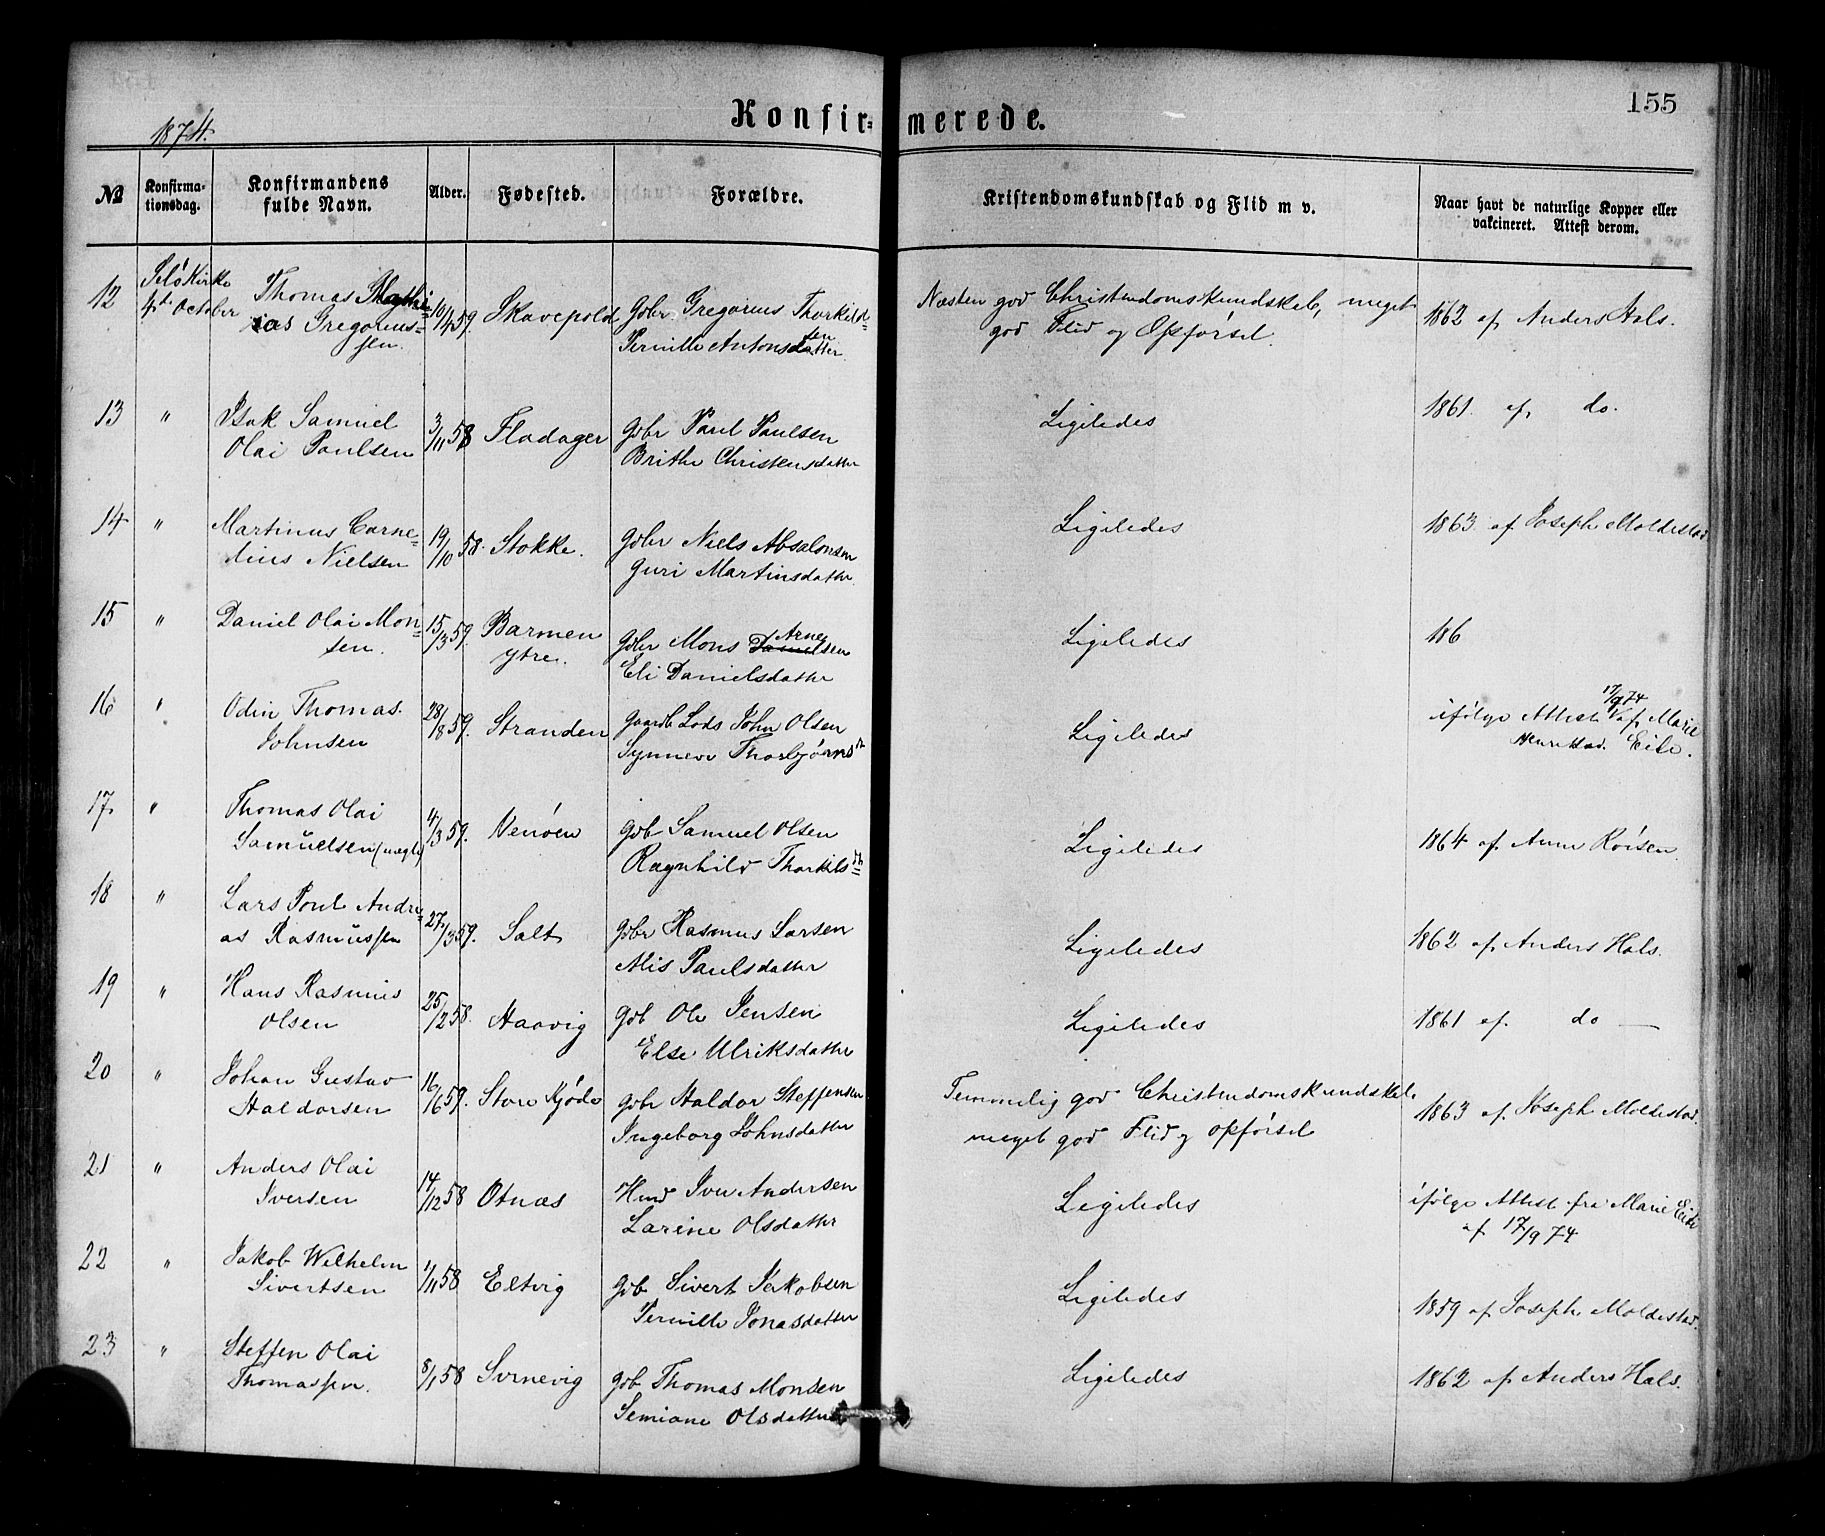 155
1874.
Konfir= merede.
№
Konfirma-
tionsdag.
Konfirmandens
fulde Navn.
Alder.
Fødested.
Forældre.
Kristendomskundskab og Flid m v.
Naar havt de naturlige Kopper eller
vakcineret. Attest derom.
12 Selö Kirke
4de October
Thomas Mathi=
as Gregorius=
sen.
10/4 59. Skavepold
Gdbr Gregorius Thorkild=
sen
Pernille Antonsdatter
Næsten god Christendomskundskab, meget
god Flid og Opførsel.
1862 af Anders Hals.
13 " Isak Samuel
Olai Paulsen
3/11 58 Fladager
Gdbr Paul Paulsen
Brithe Christensdatter
Ligeledes
1861. af do.
14 " Martinus Corne=
lius Nielsen
19/10 58. Stokke.
Gdbr Niels Absalonsen
Guri Martinsdatter.
Ligeledes
1863 af Joseph Moldestad
15 " Daniel Olai Mon=
sen.
15/3 59. Barmen
ytre.
Gdbr Mons Danielsen
Arne
Eli Danielsdatter
Ligeledes
186
16 " Odin Thomas
Johnsen
28/8 59. Stranden
Gaardb Lods John Olsen
Synneve Thorbjörnsdr
Ligeledes
ifølge Attest 17/9 74 af Marie
Eide.
17 " Thomas Olai
Samuelsen (uægte)
4/3 59. Venöen
Gdb Samuel Olsen
Ragnhild Thorkilsdtr
Ligeledes
1864 af Anne Röisen.
18 " Lars Poul Andre=
as Rasmussen
27/3 59. Salt
Gdbr Rasmus Larsen
Alis Paulsdatter
Ligeledes
1862 af Anders Hals.
19 " Hans Rasmus
Olsen
25/12 58. Haavig
Gdb Ole Jensen
Else Ulriksdatter
Ligeledes
1861 af do —
20 " Johan Gustav
Haldorsen
16/6 59. Store Kjöde
Gdbr Haldor Steffensen
Ingeborg Johnsdatter
Temmelig god Christendomskundskab,
meget god Flid og opförsel
1863 af Joseph Moldestad.
21 " Anders Olai
Iversen
14/12 58 Otnæs
Hmd Iver Andersen
Larine Olsdatter
Ligeledes
ifølge Attest fra Marie Eide
af 17/9 74
22 " Jakob Wilhelm
Sivertsen
1/11 58 Eltvig
Gdb Sivert Jakobsen
Pernille Jonasdatter
Ligeledes
1859 af Joseph Moldestad.
23 " Steffen Olai
Thomassen.
8/1 58 Sörnevig
Gdb Thomas Monsen
Semiane Olsdatter
Ligeledes
1862 af Anders Hals.